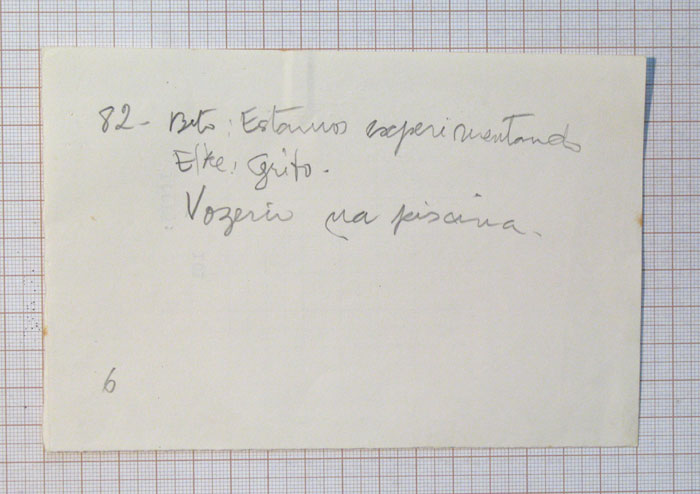 82- Beto: Estamos experimentando
Elke: Grito.
Vozerio na piscina.
6